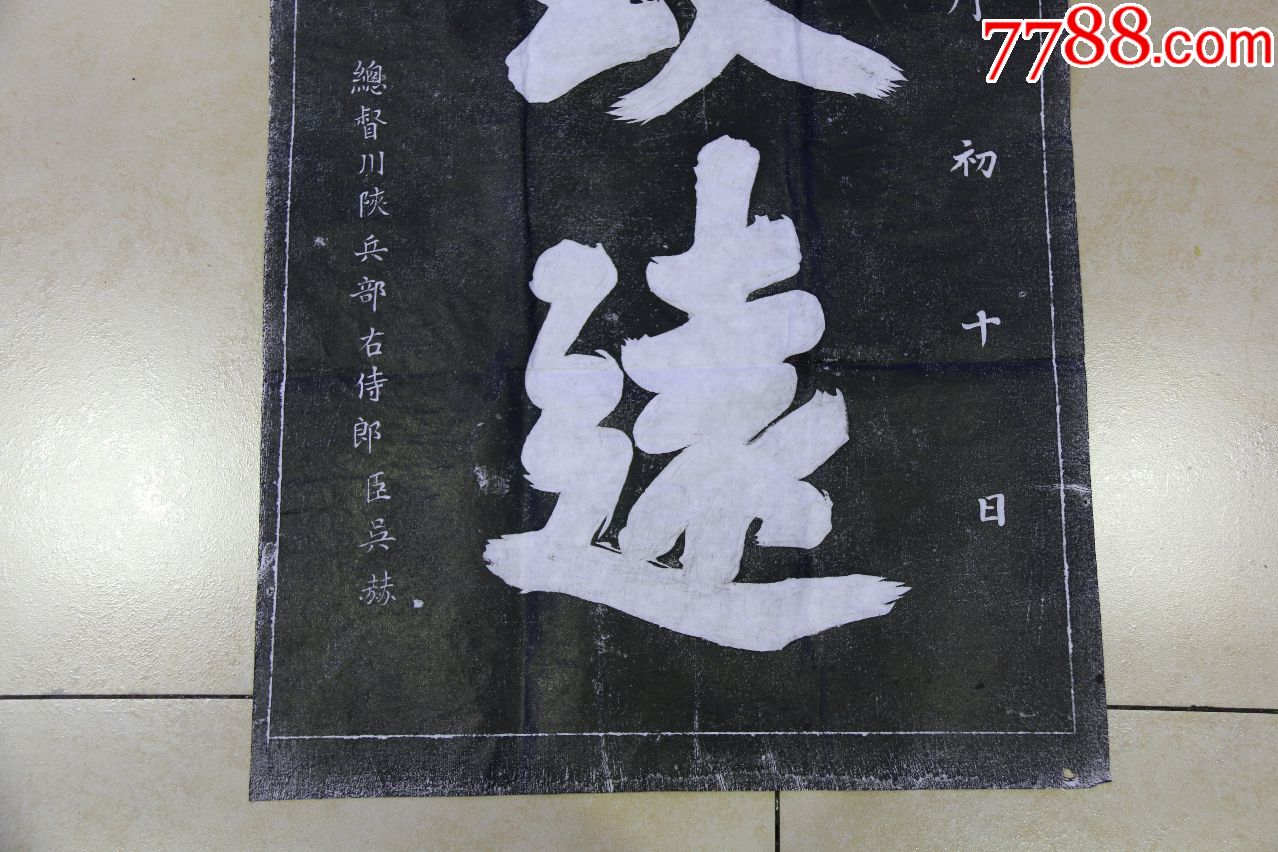 7788.com
月初十日
致遠
總督川陝兵部右侍郎臣吳赫